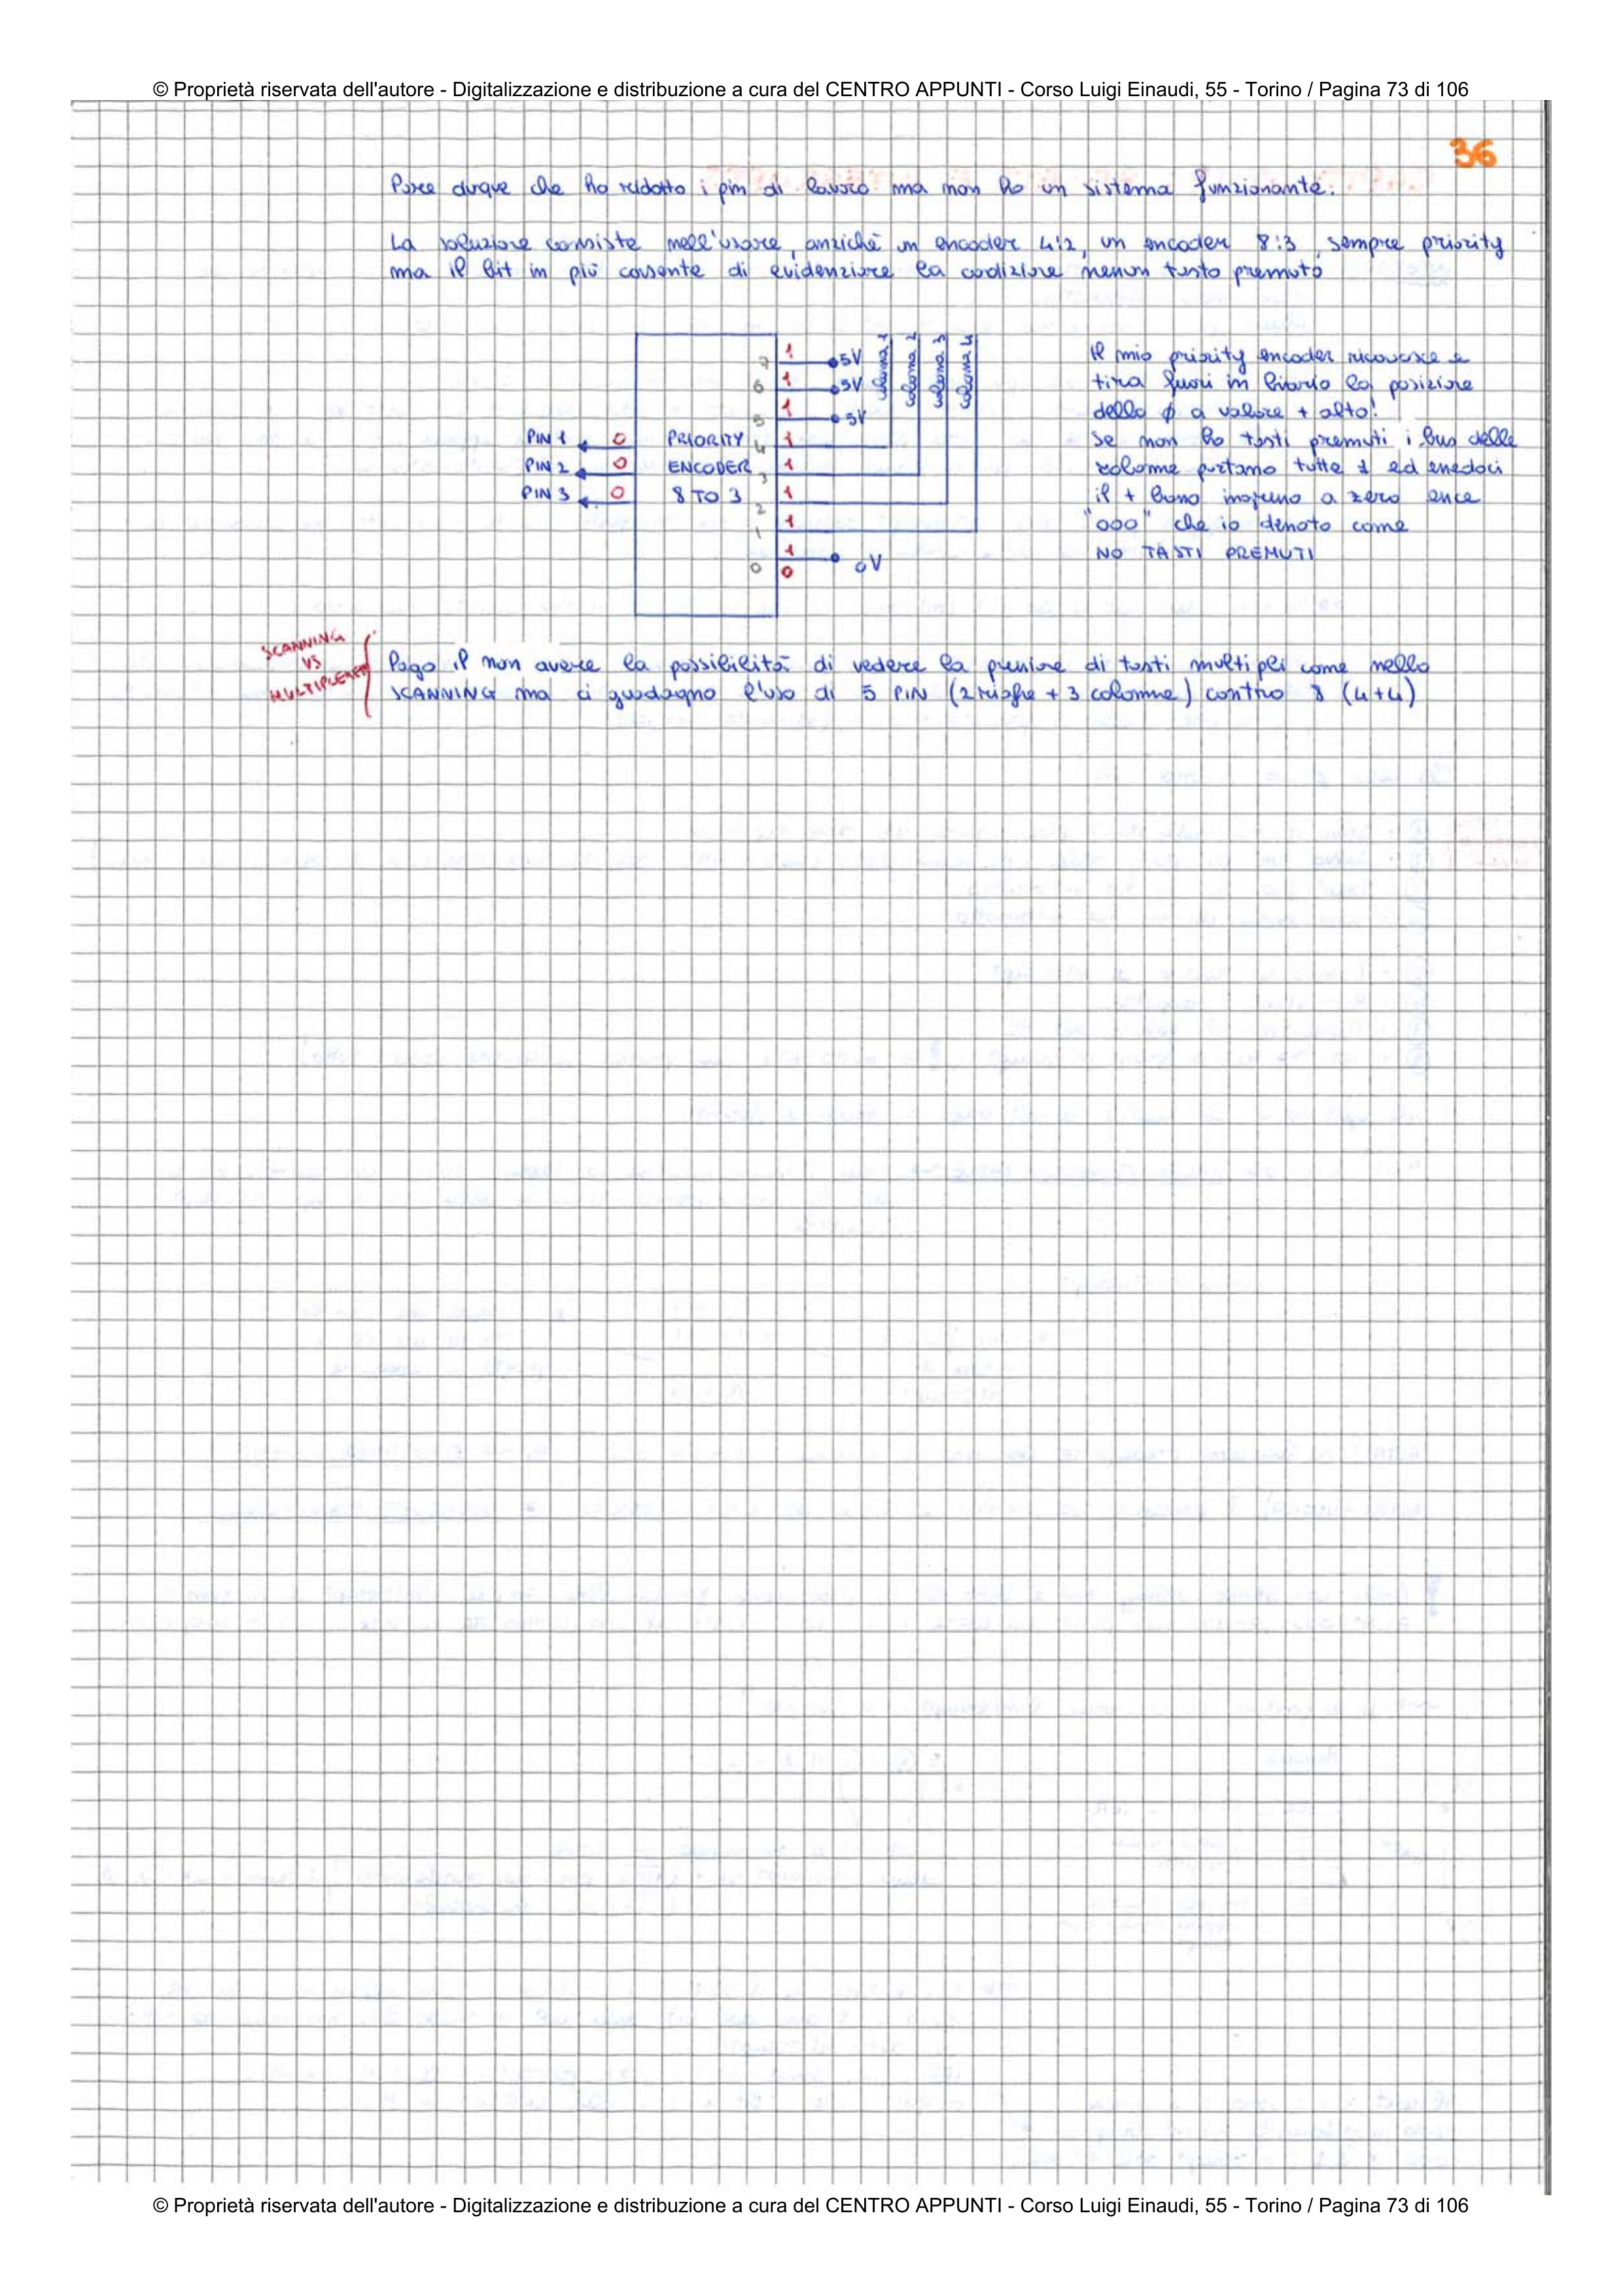 © Proprietà riservata dell'autore - Digitalizzazione e distribuzione a cura del CENTRO APPUNTI - Corso Luigi Einaudi, 55 - Torino / Pagina 73 di 106
36
Pare duque che ho ridotto i pin di lavoro ma non ho un sistema funzionante.
La soluzione consiste nell'usare, anziché un encoder 4:2, un encoder 8:3, sempre priority
ma il bit in più consente di evidenziare la codizione nenun tasto premuto
colonna 1
colonna 2
colonna 3
colonna 4
7 1 5V
6 1 5V
5 1 5V
PIN 1 0 PRIORITY 4 1
PIN 2 0 ENCODER 3 1
PIN 3 0 8 TO 3 2 1
1 1
1
0 0 0V
Il mio priority encoder riconosce e
tira fuori in biario la posizione
dello ϕ a valore + alto!
Se non ho tasti premuti i bus delle
colonne portano tutte 1 ed
il + a zero
"000" che io denoto come
NO TASTI PREMUTI
SCANNING
VS
MULTIPLEXER
Pago il non avere la possibilità di vedere la di tasti multipli come nello
SCANNING ma ci guadagno l'uso di 5 PIN (2 righe + 3 colonne) contro 8 (4+4)
© Proprietà riservata dell'autore - Digitalizzazione e distribuzione a cura del CENTRO APPUNTI - Corso Luigi Einaudi, 55 - Torino / Pagina 73 di 106